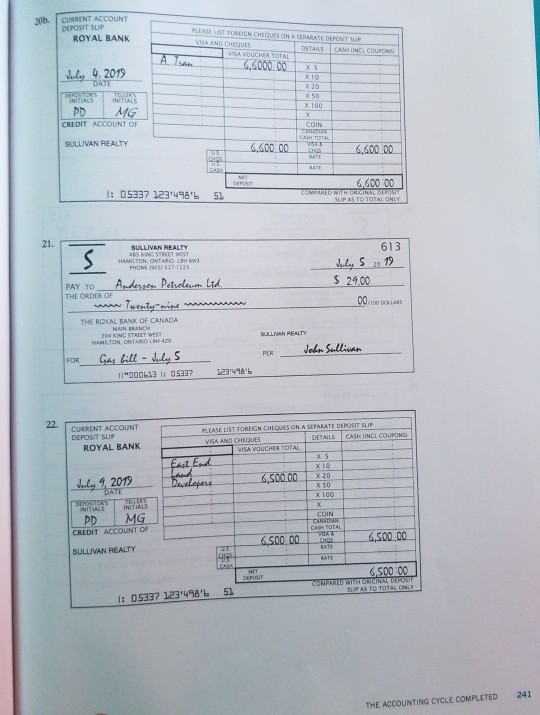 20b. CURRENT ACCOUNT
DEPOSIT SLIP
ROYAL BANK
PLEASE LIST FOREIGN CHEQUES ON A SEPARATE DEPOSIT SLIP
VISA AND CHEQUES DETAILS CASH (INCL COUPONS)
VISA VOUCHER TOTAL
A. Tran 6,6000 00 X 5
X 10
July 4, 2019 X 20
DATE X 50
DEPOSITOR'S INITIALS TELLER'S INITIALS X 100
PD MG X
CREDIT ACCOUNT OF COIN
CANADIAN CASH TOTAL
SULLIVAN REALTY 6,600 00 VISA & CHQS 6,600 00
U.S. CHQS RATE
U.S. CASH RATE
NET DEPOSIT 6,600 00
COMPARED WITH ORIGINAL DEPOSIT
SLIP AS TO TOTAL ONLY
|: 05337 123'498'6 51
21. SULLIVAN REALTY 613
S 485 KING STREET WEST
HAMILTON, ONTARIO L9H 6W3
PHONE (905) 527-1223
July 5 20 19
PAY TO Anderson Petroleum Ltd. $ 29.00
THE ORDER OF
Twenty-nine 00/100 DOLLARS
THE ROYAL BANK OF CANADA
MAIN BRANCH
204 KING STREET WEST
HAMILTON, ONTARIO L9H 4Z9
SULLIVAN REALTY
FOR Gas bill - July 5 PER John Sullivan
||"000613 |: 05337 123'498'6
22. CURRENT ACCOUNT
DEPOSIT SLIP
ROYAL BANK
PLEASE LIST FOREIGN CHEQUES ON A SEPARATE DEPOSIT SLIP
VISA AND CHEQUES DETAILS CASH (INCL COUPONS)
VISA VOUCHER TOTAL
East End X 5
Land X 10
Developers 6,500.00 X 20
July 9, 2019 X 50
DATE X 100
DEPOSITOR'S INITIALS TELLER'S INITIALS X
PD MG COIN
CREDIT ACCOUNT OF CANADIAN CASH TOTAL
6,500 00 VISA & CHQS 6,500 00
SULLIVAN REALTY U.S. CHQS RATE
U.S. CASH RATE
NET DEPOSIT 6,500 00
COMPARED WITH ORIGINAL DEPOSIT
SLIP AS TO TOTAL ONLY
|: 05337 123'498'6 51
THE ACCOUNTING CYCLE COMPLETED 241